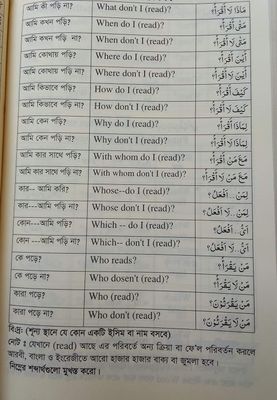 আমি কী পড়ি না? What don't I (read)? مَاذَا لَا أَقْرَأُ؟
আমি কখন পড়ি? When do I (read)? مَتَى أَقْرَأُ؟
আমি কখন পড়ি না? When don't I (read)? مَتَى لَا أَقْرَأُ؟
আমি কোথায় পড়ি? Where do I (read)? أَيْنَ أَقْرَأُ؟
আমি কোথায় পড়ি না? Where don't I (read)? أَيْنَ لَا أَقْرَأُ؟
আমি কিভাবে পড়ি? How do I (read)? كَيْفَ أَقْرَأُ؟
আমি কিভাবে পড়ি না? How don't I (read)? كَيْفَ لَا أَقْرَأُ؟
আমি কেন পড়ি? Why do I (read)? لِمَاذَا أَقْرَأُ؟
আমি কেন পড়ি না? Why don't I (read)? لِمَاذَا لَا أَقْرَأُ؟
আমি কার সাথে পড়ি? With whom do I (read)? مَعَ مَنْ أَقْرَأُ؟
আমি কার সাথে পড়ি না? With whom don't I (read)? مَعَ مَنْ لَا أَقْرَأُ؟
কার-- আমি করি? Whose--do I (read)? لِمَنْ...أَفْعَلُ؟
কার---আমি পড়ি না? Whose don't I (read)? لِمَنْ...لَا أَفْعَلُ؟
কোন---আমি পড়ি? Which -- do I (read)? أَيُّ...أَفْعَلُ؟
কোন ---আমি পড়ি না? Which-- don't I (read)? أَيُّ...لَا أَفْعَلُ؟
কে পড়ে? Who reads? مَنْ يَقْرَأُ؟
কে পড়ে না? Who dosen't (read)? مَنْ لَا يَقْرَأُ؟
কারা পড়ে? Who (read)? مَنْ يَقْرَئُوْنَ؟
কারা পড়ে না? Who don't (read)? مَنْ لَا يَقْرَئُوْنَ؟
বিঃদ্রঃ (শূন্য স্থানে যে কোন একটি ইসিম বা নাম বসবে)
নোট : যেখানে (read) আছে এর পরিবর্তে অন্য ক্রিয়া বা ফে'ল পরিবর্তন করলে
আরবী, বাংলা ও ইংরেজীতে আরো হাজার হাজার বাক্য বা জুমলা হবে।
নিম্নের শব্দার্থগুলো মুখস্ত করো।